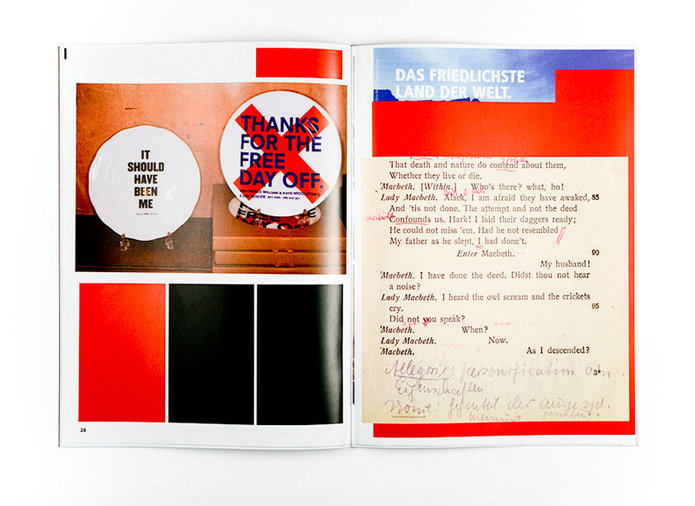 IT
SHOULD
HAVE
BEEN
ME
THANKS
FOR THE
FREE
DAY OFF.
28
DAS FRIEDLICHSTE
LAND DER WELT.
That death and nature do contend about them,
Whether they live or die.
'Macbeth. [Within.] Who's there? what, ho!
Lady Macbeth. Alack, I am afraid they have awaked, 85
And 'tis not done. The attempt and not the deed
Confounds us. Hark! I laid their daggers ready;
He could not miss 'em. Had he not resembled
My father as he slept, I had done't.
Enter Macbeth. 90
My husband!
'Macbeth. I have done the deed. Didst thou not hear
a noise?
Lady Macbeth. I heard the owl scream and the crickets
cry. 95
Did not you speak?
'Macbeth. When?
Lady Macbeth. Now.
'Macbeth. As I descended?
Allegorie: personification von
Eigenschaften
Ironie: Gegenteil der